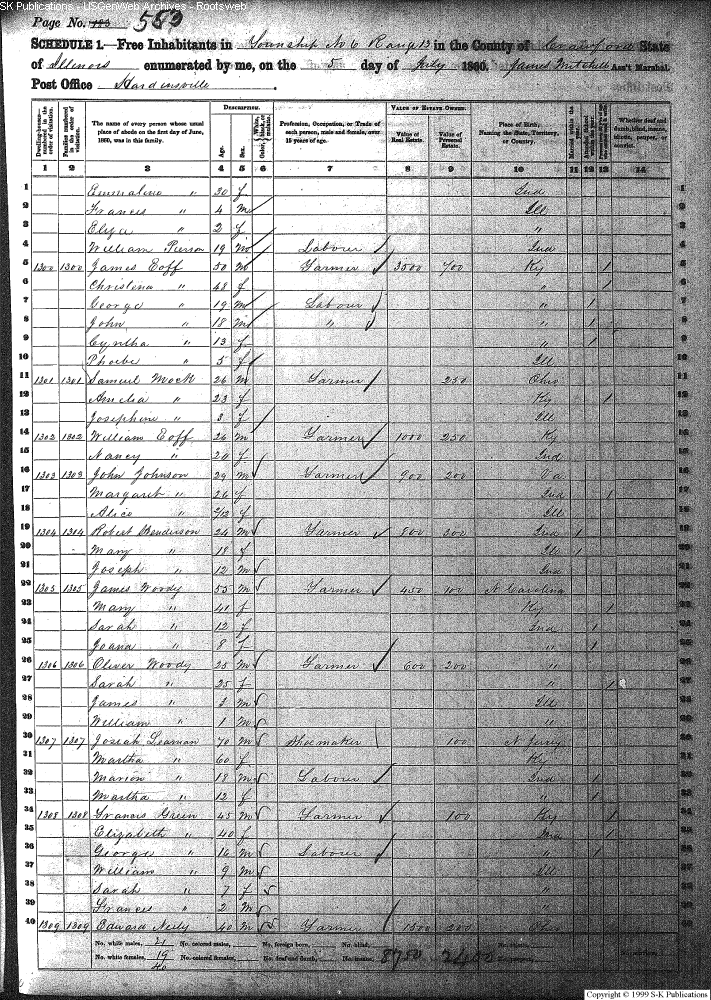 SK Publications - USGenWeb Archives - Rootsweb
Page No. 583
SCHEDULE 1.—Free Inhabitants in Township No 6 Range 13 in the County of Crawford State
of Illinois enumerated by me, on the 5 day of July 1860. James Mitchell Ass't Marshal.
Post Office Hardinsville
Dwelling-houses—numbered in the order of visitation.
Families numbered in the order of visitation.
The name of every person whose usual place of abode on the first day of June, 1860, was in this family.
DESCRIPTION.
Age.
Sex.
Color, White, black, or mulatto.
Profession, Occupation, or Trade of each person, male and female, over 15 years of age.
VALUE OF ESTATE OWNED.
Value of Real Estate.
Value of Personal Estate.
Place of Birth, Naming the State, Territory, or Country.
Married within the year.
Whether deaf and dumb, blind, insane, idiotic, pauper, or convict.
1 2 3 4 5 6 7 8 9 10 11 12 13 14
1 Emmaline " 30 f Ind 1
2 Francis " 4 m Ill 2
3 Eliza " 2 f " 3
4 William Pierson 19 m Labourer Ind 4
5 1300 1300 James Eoff 50 m Farmer 3500 700 Ky 1 5
6 Christena " 48 f " 1 6
7 George " 19 m Labour " 1 7
8 John " 18 m " " 1 8
9 Cyntha " 13 f " 1 9
10 Phoebe " 5 f Ill 10
11 1301 1301 Samuel Mock 26 m Farmer 250 Ohio 11
12 Amelia " 23 f Ky 1 12
13 Josephine " 3 f Ill 13
14 1302 1302 William Eoff 26 m Farmer 1000 250 Ky 14
15 Nancy " 20 f Ind 15
16 1303 1303 John Johnson 29 m Farmer 900 200 Va 16
17 Margaret " 26 f Ind 1 17
18 Alice " f Ill 18
19 1304 1304 Robert Henderson 24 m Farmer 500 300 Ind 1 19
20 Mary " 18 f Ill 1 20
21 Joseph " 12 m Ind 21
22 1305 1305 James Woody 55 m Farmer 450 100 N Carolina 22
23 Mary " 41 f Ky 1 23
24 Sarah " 12 f Ind 1 24
25 Joana " 8 f " 1 25
26 1306 1306 Oliver Woody 25 m Farmer 600 200 " 26
27 Sarah " 25 f " 1 27
28 James " 3 m Ill 28
29 William " 1 m " 29
30 1307 1307 Josiah Leaman 70 m Shoemaker 100 N Jersey 30
31 Martha " 60 f Ky 31
32 Marion " 18 m Labour Ind 1 32
33 Martha " 12 f " 1 33
34 1308 1308 Francis Green 45 m Farmer 100 Ky 1 34
35 Elizabeth " 40 f Ind 1 35
36 George " 16 m Labour " 1 36
37 William " 9 m Ill 37
38 Sarah " 7 f " 38
39 Francis " 2 m " 39
40 1309 1309 Edward Neily 40 m Farmer 1500 200 Ohio 40
No. white males, 21 No. colored males, No. foreign born, No. blind,
No. white females, 19 No. colored females, No. deaf and dumb, No. insane, 8750 2400
40
Copyright © 1999 S-K Publications